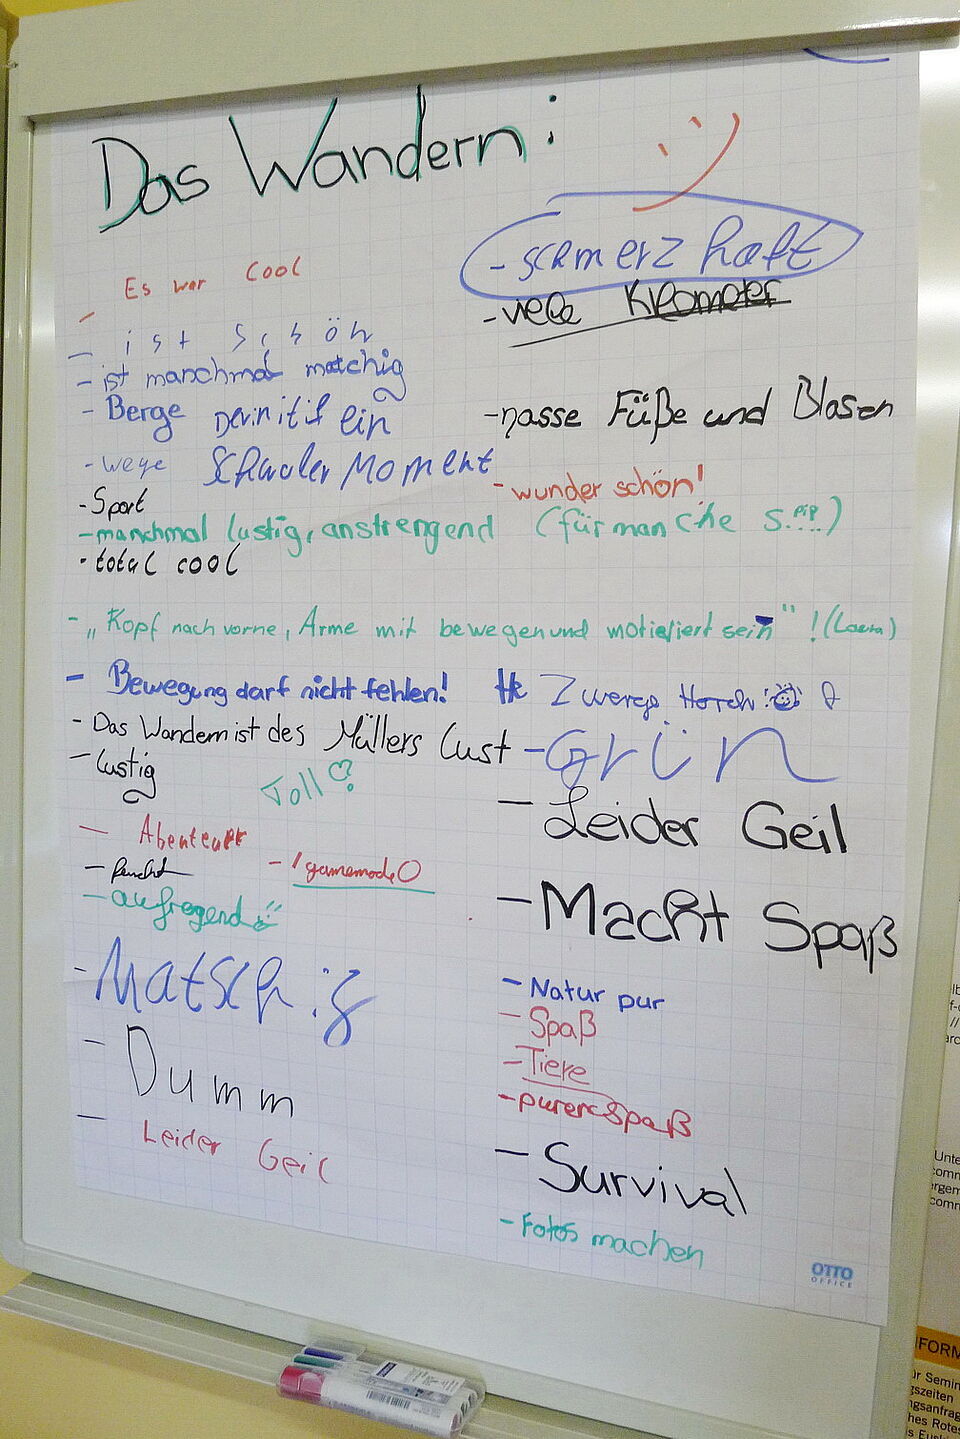 Das Wandern :
Es war cool
- ist schön
- ist manchmal matchig
- Berge Devinitif ein
- wege Schauler Moment
- Sport
- manchmal lustig, anstrengend (für manche S.pip..)
- total cool
- schmerzhaft
- viele Kilometer
- nasse Füße und Blasen
- wunderschön!
- "Kopf nach vorne, Arme mit bewegen und motiviert sein" ! (Laura)
- Bewegung darf nicht fehlen!
Zwerge
- Das Wandern ist des Müllers Lust
- lustig
Toll
- Abenteuer
- feucht
- /gamemode 0
- aufregend
- Matschig
- Dumm
- Leider Geil
- Grün
- Leider Geil
- Macht Spaß
- Natur pur
- Spaß
- Tiere
- purer Spaß
- Survival
- Fotos machen
OTTO
OFFICE
FORM